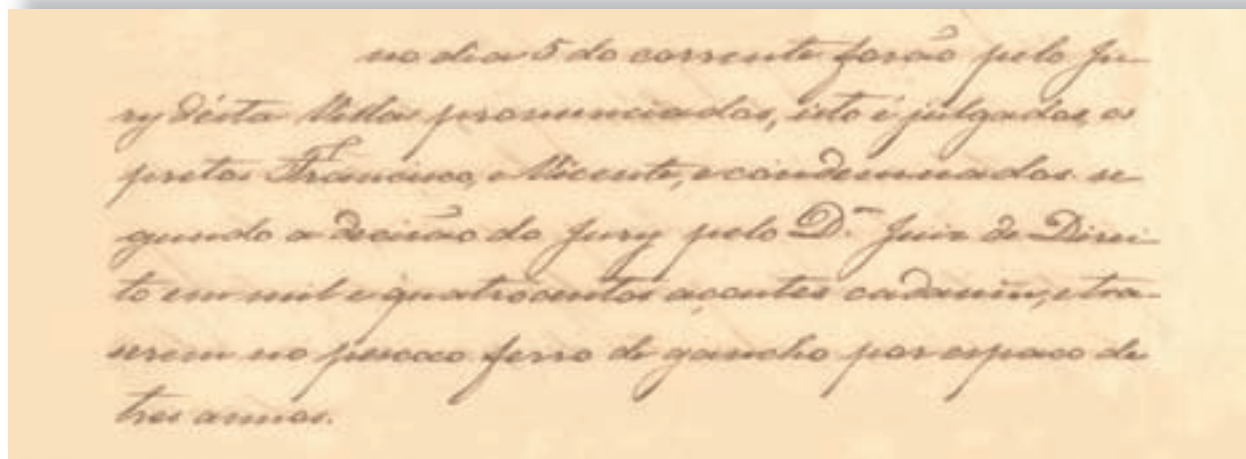 no dia 5 do corrente forão pelo Ju-
ry désta Villa pronunciados, isto é julgados, os
pretos Francisco, e Vicente, e condemnados se-
gundo a decisão do Jury pelo D.r Juiz de Direi-
to em mil e quatrocentos açoutes cada um, e tra-
serem no pescoço ferro de gancho por espaço de
tres annos.